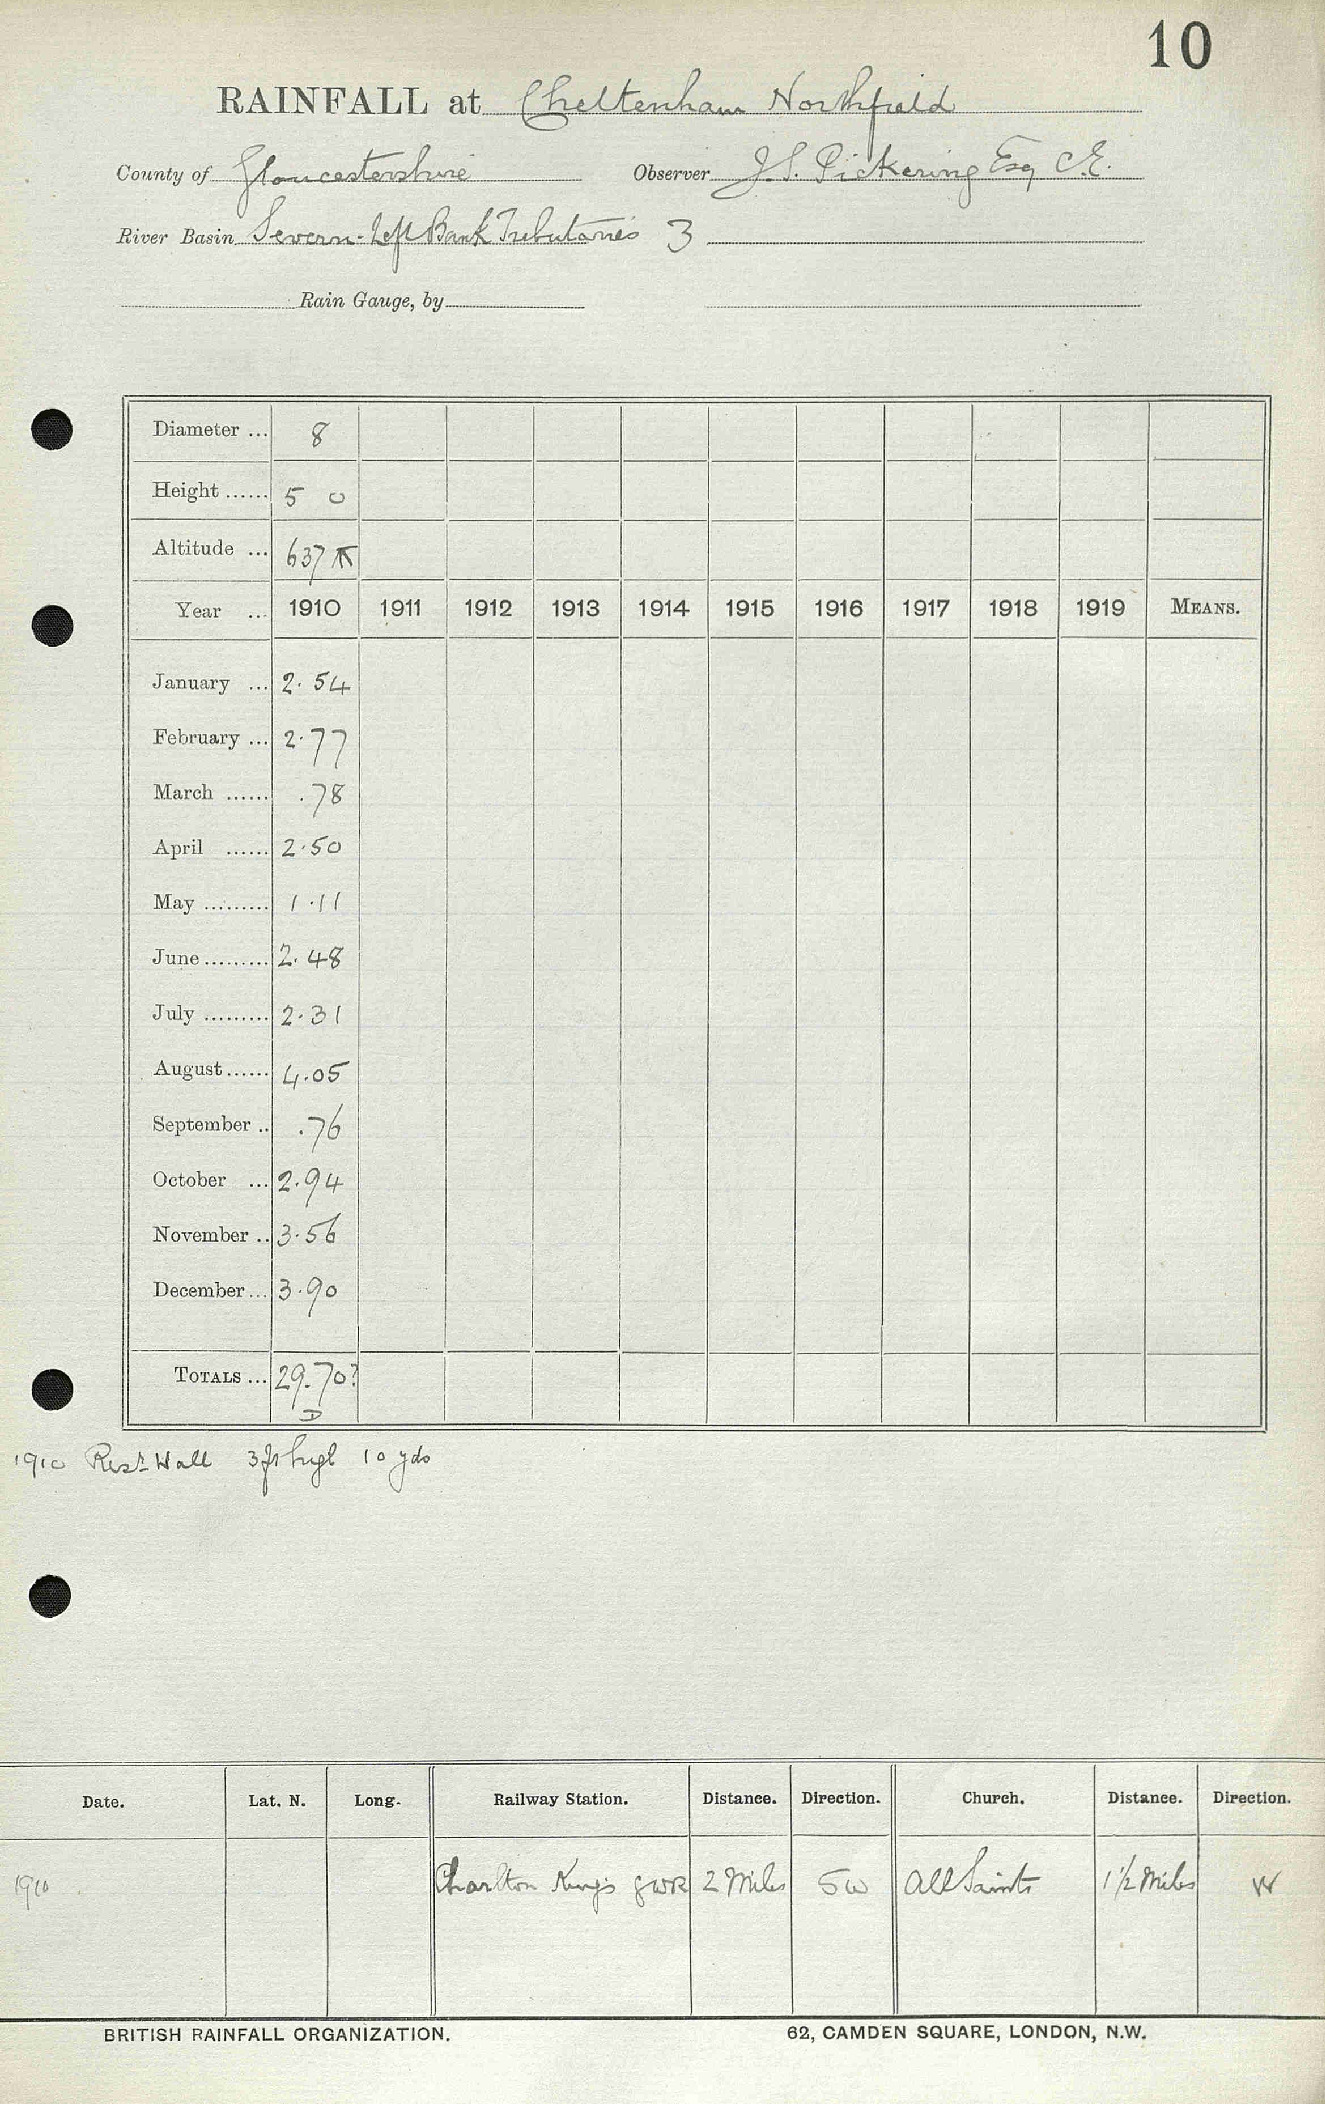 10
RAINFALL at Cheltenham Northfield
County of Gloucestershire Observer J.S. Pickering Esq C.E.
River Basin Severn - Left Bank Tributaries 3
Rain Gauge, by
Diameter ... 8
Height ...... 5 0
Altitude ... 637
Year ... 1910 1911 1912 1913 1914 1915 1916 1917 1918 1919 MEANS.
January ... 2.54
February ... 2.77
March ...... .78
April ...... 2.50
May ......... 1.11
June ......... 2.48
July ......... 2.31
August ...... 4.05
September .. .76
October ... 2.94
November .. 3.56
December ... 3.90
TOTALS ... 29.70?
D
1910 Rest. Wall 3ft high 10 yds
Date. Lat. N. Long. Railway Station. Distance. Direction. Church. Distance. Direction.
1910 Charlton Kings GWR 2 Miles SW All Saints 1 1/2 Miles W
BRITISH RAINFALL ORGANIZATION. 62, CAMDEN SQUARE, LONDON, N.W.